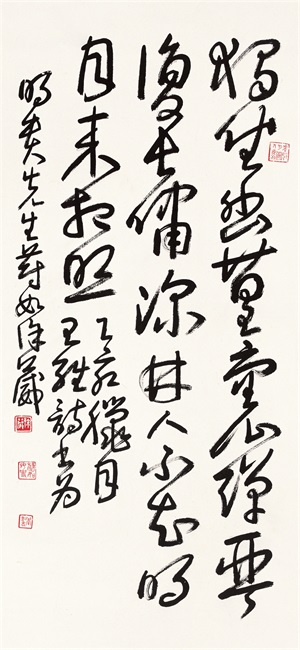 獨坐幽篁裏彈琴
復長嘯深林人不知明
月來相照
臘月
王維詩書為
先生